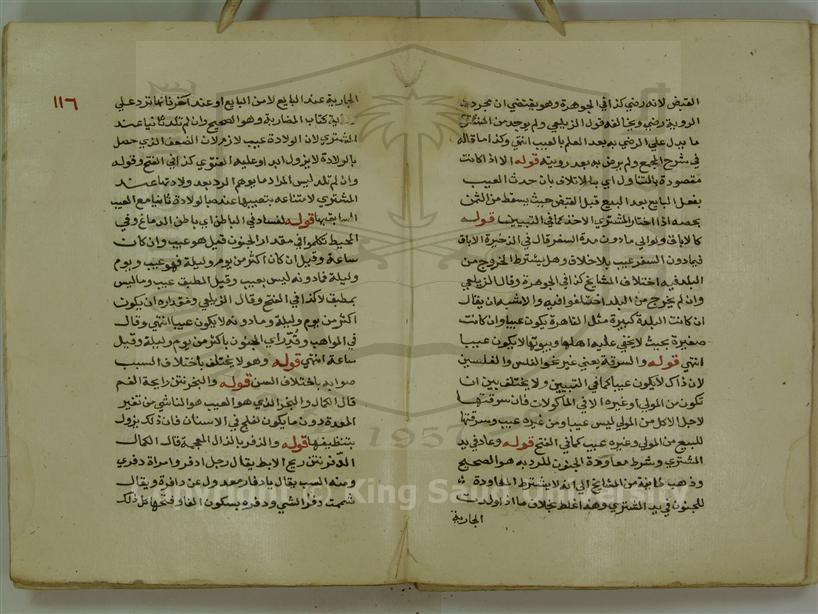 القبض لانه رضي كذا في الجوهرة وهو يقتضي ان مجرد
الروية رضي ويخالفه قول الزيلعي ولم يوجد من المشتري
ما يدل علي الرضي به بعد العلم بالعيب انتهي وكذا ما قاله
في شرح المجمع ولم يرض به بعد رويته قوله الا اذا كانت
مقصودة بالتناول اي بالاتلاف بان حدث العيب
بفعل البايع بعد البيع قبل القبض حيث يسقط من الثمن
بحصه اذا اختار المشتري الاخذ كما في التبيين قوله
كالاباق ولو الي مادون مدة السفر قال في الذخيرة الاباق
فيما دون السفر عيب بلا خلاف وهل يشترط الخروج من
البلد فيه اختلاف المشايخ كذا في الجوهرة وقال الزيلعي
وان لم يخرج من البلد اختلفوا فيه والاشبه ان يقال
ان كانت البلدة كبيرة مثل القاهرة يكون عيبا وان كانت
صغيرة بحيث لا يخفي عليه اهلها وبيوتها لا يكون عيبا
انتهي قوله والسرقة يعني غير نحو الفلس والفلسين
لان ذلك لا يكون عيبا كما في التبيين ولا يختلف بين ان
تكون من المولي او غيره الا في الماكولات فان سرقتها
لاجل الاكل من المولي ليس عيبا ومن غيره عيب وسرقتها
للبيع من المولي وغيره عيب كما في الفتح قوله وعاد في يد
المشتري وشرط معاودة الجنون للرد به هو الصحيح
وذهب طايفة من المشايخ الي انه لا يشترط المعاودة
للجنون في يد المشتري وهذا غلط بخلاف ما اذا ولدت
الجارية
١١٦
الجارية عند البايع لا من البايع او عند آخر فانها ترد علي
رواية كتاب المضاربة وهو الصحيح وان لم تلد ثانيا عند
المشتري لان الولادة عيب لازم لان الضعف الذي حصل
بالولادة لا يزول ابدا وعليه الفتوي كذا في الفتح وقوله
وان لم تلد ليس المراد ما يوهم الرد بعد ولادتها عند
المشتري لامتناعه بتعيبها عنده بالولادة ثانيا مع العيب
السابق بها قوله لفساد في الباطن اي باطن الدماغ وفي
المحيط تكلموا في مقدار الجنون قيل هو عيب وان كان
ساعة وقيل ان كان اكثر من يوم وليلة فهو عيب ويوم
وليلة فما دونه ليس بعيب وقيل المطبق عيب وما ليس
بمطبق لا كذا في الفتح وقال الزيلعي ومقداره ان يكون
اكثر من يوم وليلة وما دونه لا يكون عيبا انتهي وقال
في المواهب وقدر اي الجنون باكثر من يوم وليلة وقيل
ساعة انتهي قوله وهو لا يختلف باختلاف السبب
صوابه باختلاف السن قوله والبخر نتن رايحة الفم
قال الكمال والبخر الذي هو العيب هو الناشي من تغير
المعدة دون ما يكون لقلح في الاسنان فان ذلك يزول
بتنظيفها قوله والذفر بالذال المعجمة قال الكمال
الدفر نتن ريح الابط يقال رجل ادفر وامراة دفري
ومنه السب يقال يا دفار معدول عن دافرة ويقال
شممت دفر الشي ودفره بسكون الفا وفتحها كل ذلك
Copyright © King Saud University
1957